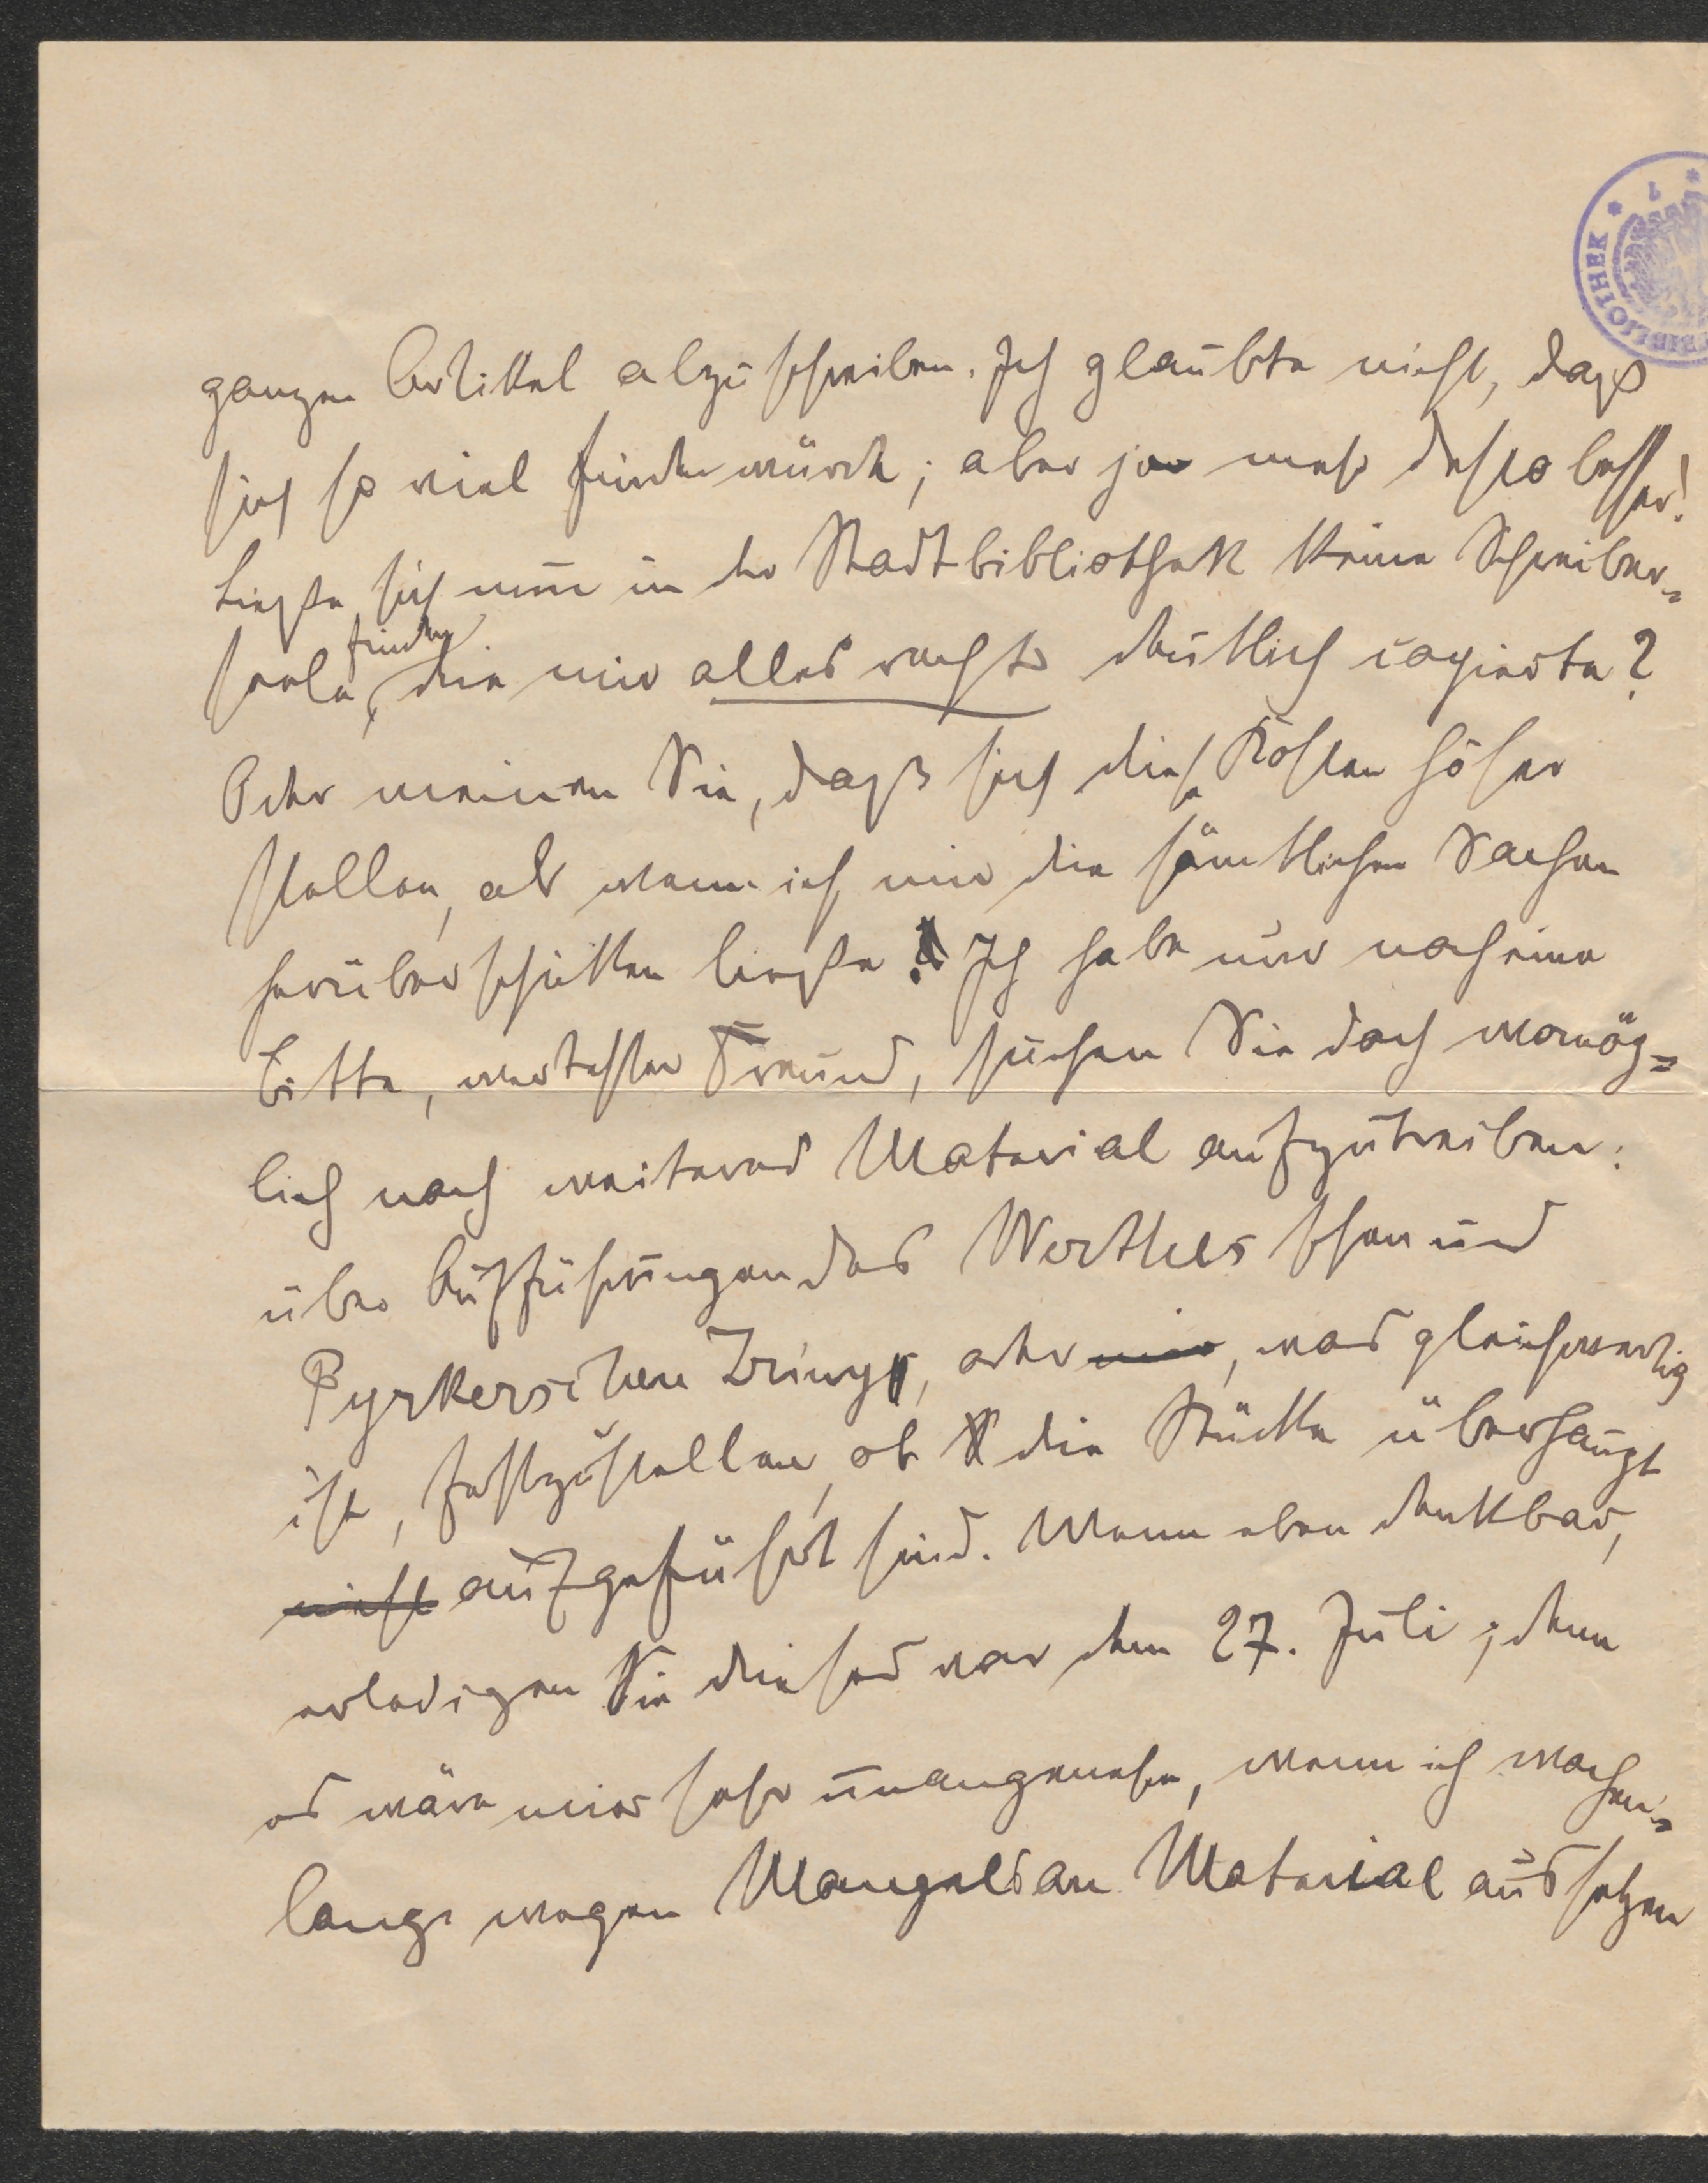 ganzen Artikel abzuschreiben. Ich glaubte nicht, daß
sich so viel finden würde; aber je mehr desto besser!
Ließe sich nun in der Stadtbibliothek keine Schreiber-
seele finden, die mir alles recht deutlich copierte?
Oder meinen Sie, daß sich diese Kosten höher
stellen, als wenn ich mir die sämtlichen Sachen
herüberschicken ließe? Ich habe nur noch eine
Bitte, wertester Freund, suchen Sie doch womög=
lich noch weiteres Material aufzutreiben:
über Aufführungen des Werthesschen und
Pyrkerschen Zriny, oder nur, was gleichwertig
ist, festzustellen, ob die Stücke überhaupt
nicht aufgeführt sind. Wenn eben denkbar,
erledigen Sie dieses vor dem 27. Juli; denn
es wäre mir sehr unangenehm, wenn ich wochen-
lang wegen Mangels an Material aussetzen
BIBLIOTHEK